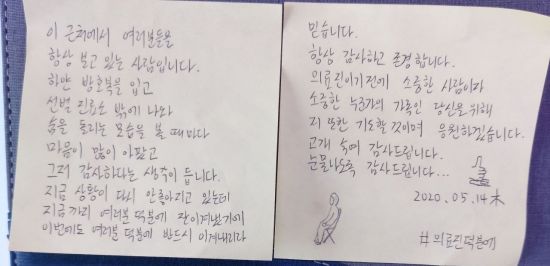 이 근처에서 여러분들을
항상 보고 있는 사람입니다.
하얀 방호복을 입고
선별 진료소 밖에 나와
숨을 돌리는 모습을 볼 때마다
마음이 많이 아팠고
그저 감사하다는 생각이 듭니다.
지금 상황이 다시 안좋아지고 있는데
지금까지 여러분 덕분에 잘이겨냈기에
이번에도 여러분 덕분에 반드시 이겨내리라
믿습니다.
항상 감사하고 존경합니다.
의료진이기전에 소중한 사람이자
소중한 누군가의 가족인 당신을 위해
저 또한 기도할것이며 응원하겠습니다.
고개 숙여 감사드립니다.
눈물나도록 감사드립니다...
2020.05.14 木
#의료진덕분에